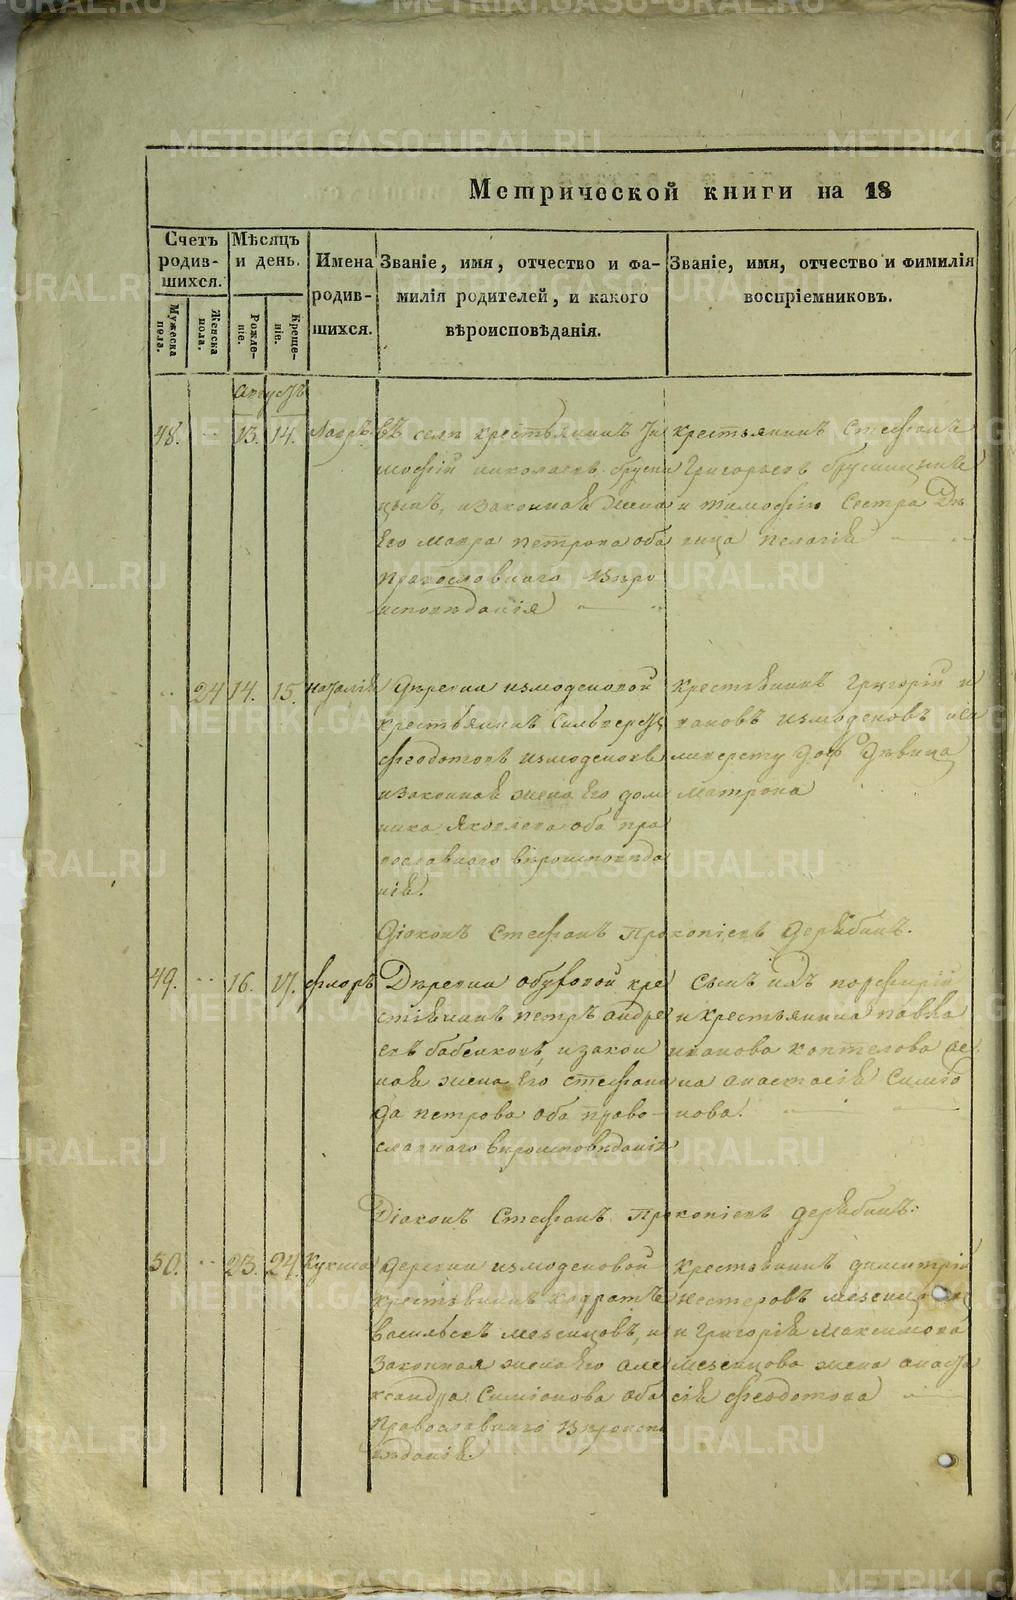 Метрической книги на 18
Счетъ родив-шихся.
Мужеска пола.
Женска пола.
Мѣсяцъ и день.
Рожде-ніе.
Креще-ніе.
Имена родив-шихся.
Званіе, имя, отчество и фа-
милія родителей, и какого
вѣроисповѣданія.
Званіе, имя, отчество и фимилія
воспріемниковъ.
Августъ
48. 13. 14. Лавръ
Въ селѣ крестьянинъ Ти
мофій николаевъ брусни
цынъ, и законная жена
Его мавра петрова оба
православнаго вѣро
исповѣданія
крестьянинъ Стефанъ
Григорьевъ брусницынъ
и тимофію Сестра Дѣ
вица пелагія
24 14. 15. наталія
Деревни измоденовой
крестьянинъ Сильверстъ
феодотовъ измоденовъ
и законная жена Его дом
ника Яковлева оба пра
вославнаго вѣроисповѣда
нія.
крестьянинъ Григорій и
вановъ измоденовъ и си
ливерсту дочь дѣвица
матрона
Діаконъ Стефанъ Прокопіевъ Дерябинъ.
49. 16. 17. флоръ
Деревни обуховой кре
стіянинъ петръ андре
евъ бабенковъ, и закон
ная жена Его стефани
да петрова оба право-
славнаго вѣроисповѣданія
Сынъ ихъ порфирій
и крестьянина павла
иванова коптелова же
на анастасія Симіо
нова.
Діаконъ Стефанъ Прокопіевъ дерябинъ:
50. 23. 24. Кукша
Деревни измоденовой
крестьянинъ кодратъ
васильевъ мезенцовъ, и
Законная жена Его але
ксандра Симіонова оба
православнаго вѣроиспо
вѣданія.
крестьянинъ димитрій
нестеровъ мезенцовъ
и Григорія Максимова
мезенцова жена анаста
сія феодотова
METRIKI.GASO-URAL.RU